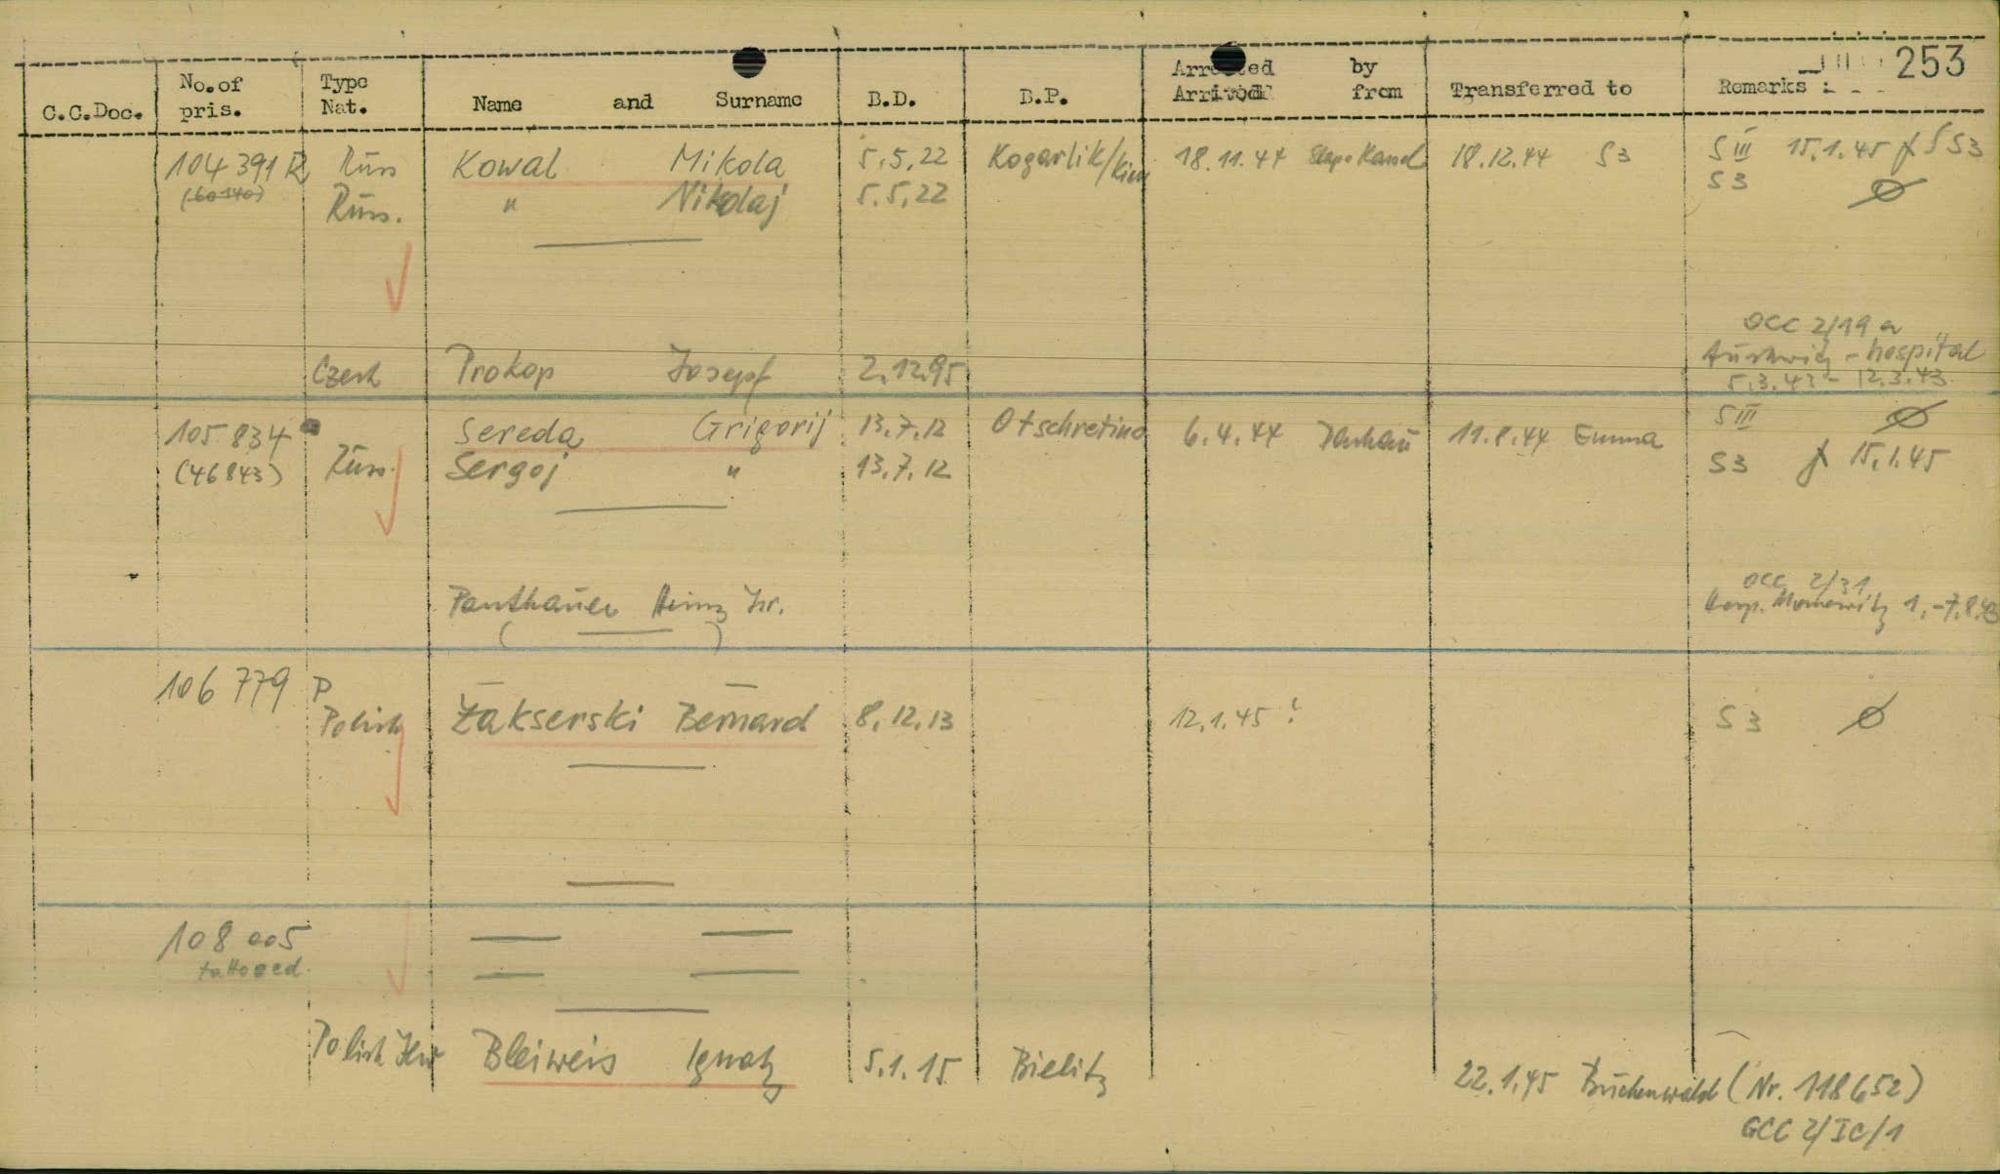 253
C.C.Doc. No. of pris. Type Nat. Name and Surname B.D. B.P. Arrested by Arrived from Transferred to Remarks :
104 391 R Russ Kowal Mikola 5.5.22 Kogarlik/Kiew 18.11.44 18.12.44 S3 S III 15.1.45 S3
(60140) Russ. " Nikolaj 5.5.22 S3
OCC 2/19 a
Czech Prokop Josepf 2.12.95 Auschwitz - hospital
5.3.43 - 12.3.43
105 834 Sereda Grigorij 13.7.12 Otschretino 6.4.44 Dachau 11.8.44 Emma S III
(46843) Russ. Sergoj " 13.7.12 S3 15.1.45
OCC 2/31
Heinz Isr. Hosp. Monowitz 1.-7.8.43
106 779 P
Polish Żakserski Bernard 8.12.13 12.1.45 ! S3
108 005
tattooed
Polish Jew Bleiweis Ignatz 5.1.15 Bielitz 22.1.45 Buchenwald (Nr. 118652)
GCC 2/IC/1